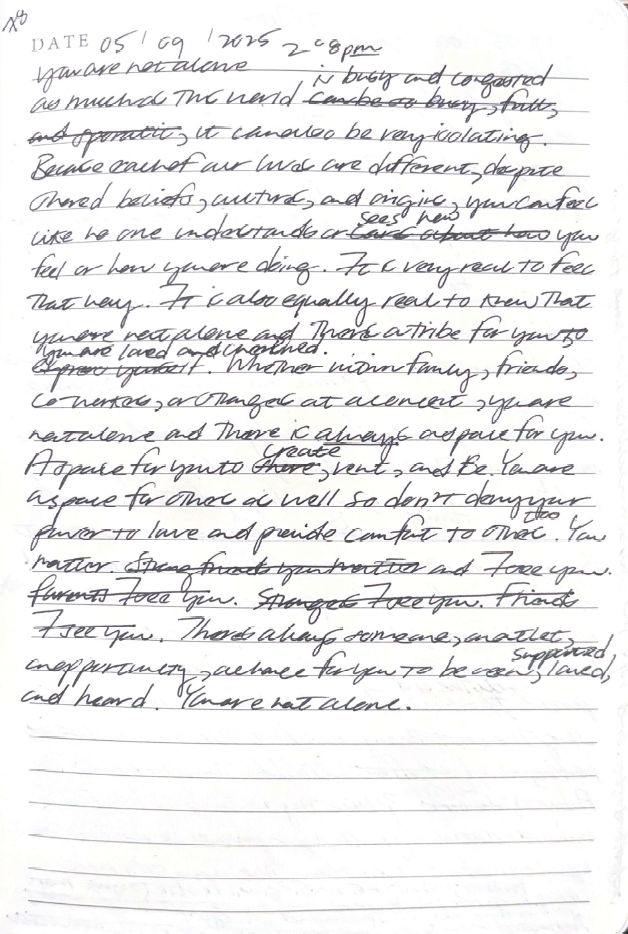 28
DATE 05/09/2025 2:08pm
you are not alone
is busy and congested
as much as The world can be so busy, full,
and sporatic, it can also be very isolating.
Because each of our lives are different, despite
shared beliefs, culture, and origins, you can feel
sees how
like no one understands or cares about how you
feel or how you are doing. It is very real to feel
That way. It is also equally real to know That
you are not alone and There's a tribe for you to
you are loved and cherished.
express yourself. Whether within family, friends,
coworkers, or strangers at a concert, you are
not alone and There is always a space for you.
create
A space for you to share, vent, and Be. You are
a space for others as well so don't deny your
too!
power to love and provide comfort to others. You
matter. Strong friends you matter and I see you.
Parents I see you. Strangers I see you. Friends
I see you. There's always someone, an outlet,
supported,
an opportunity, a chance for you to be seen, loved,
and heard. You are not alone.